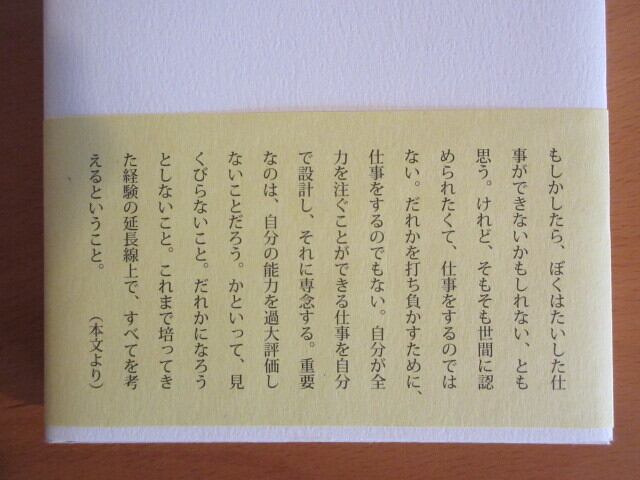 もしかしたら、ぼくはたいした仕
事ができないかもしれない、とも
思う。けれど、そもそも世間に認
められたくて、仕事をするのでは
ない。だれかを打ち負かすために、
仕事をするのでもない。自分が全
力を注ぐことができる仕事を自分
で設計し、それに専念する。重要
なのは、自分の能力を過大評価し
ないことだろう。かといって、見
くびらないこと。だれかになろう
としないこと。これまで培ってき
た経験の延長線上で、すべてを考
えるということ。
（本文より）